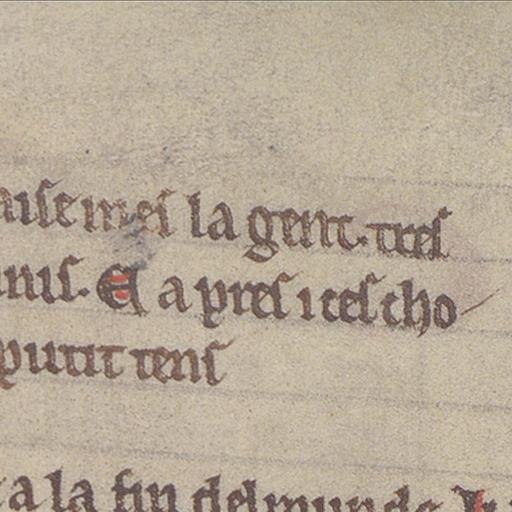 aise mei la gent. tres
nus. E apres ices cho
putit tens
a la fin del munde.